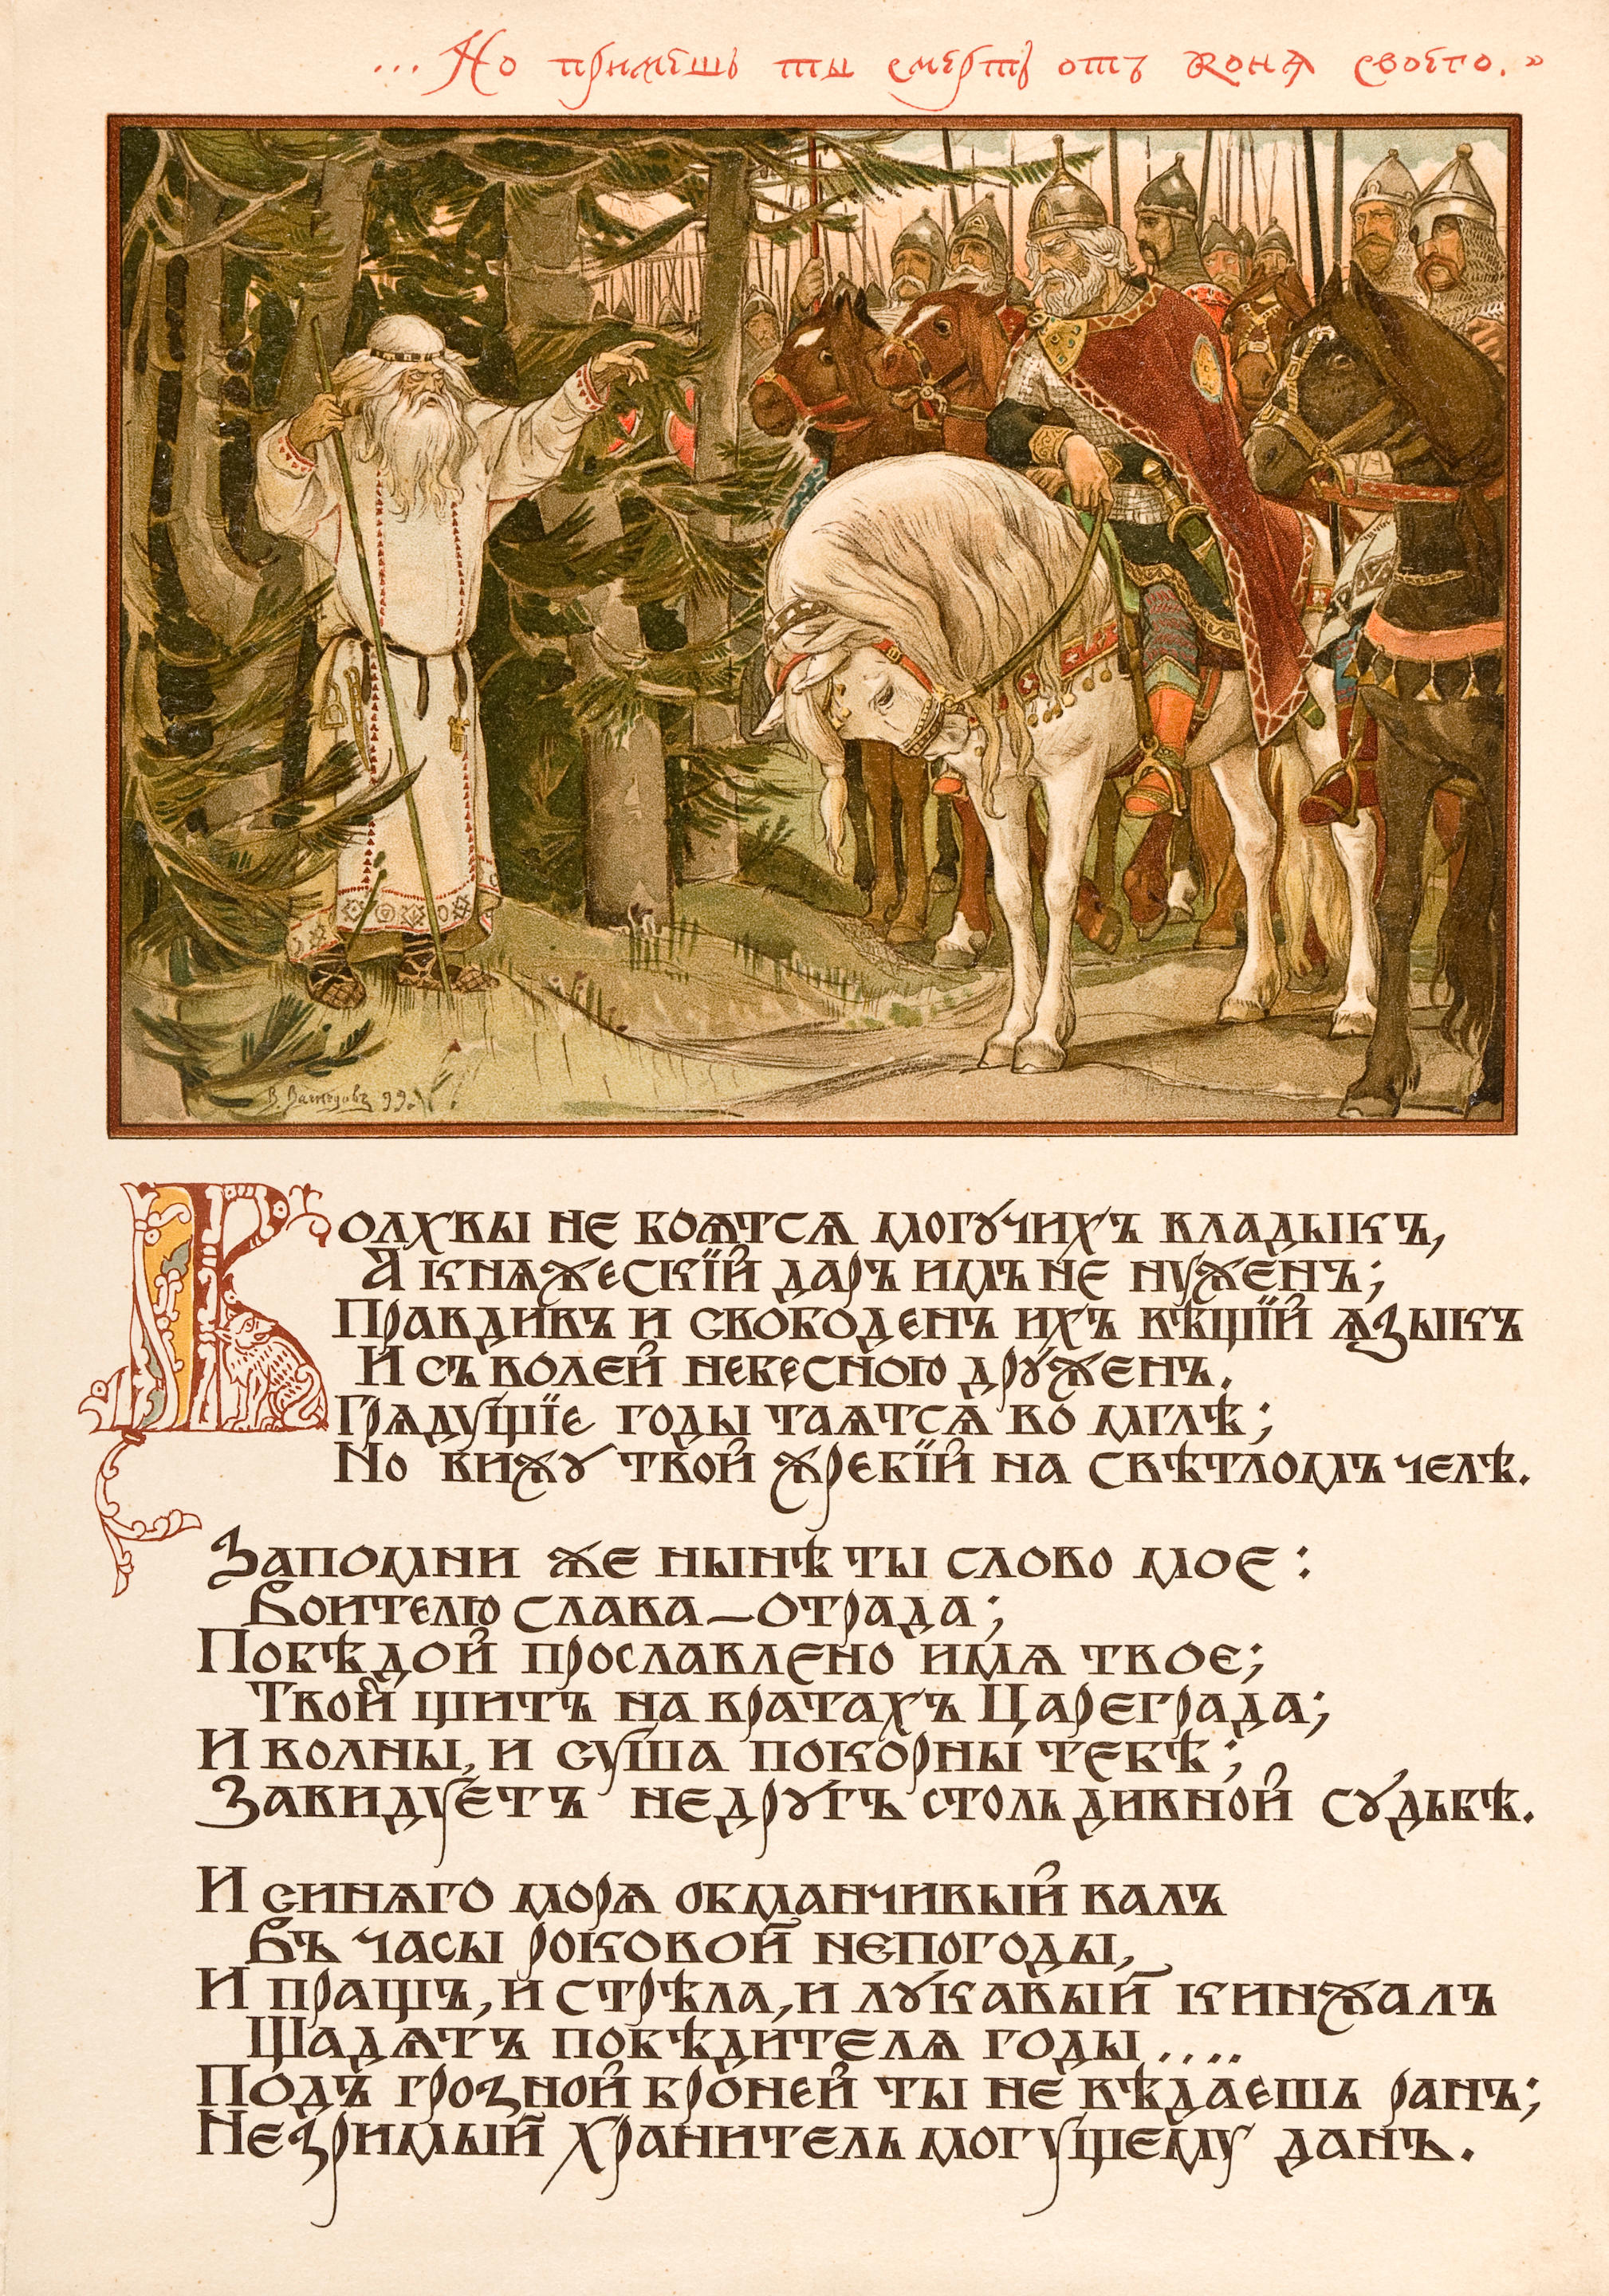 ... Но примешь ты смерть отъ коня своего. »
В. Васнецовъ 99.
Волхвы не боятся могучихъ владыкъ,
А княжескїй даръ имъ не нуженъ;
Правдивъ и свободенъ ихъ вѣщїй языкъ
И съ волей небесною друженъ.
Грядущїе годы таятся во мглѣ;
Но вижу твой жребїй на свѣтломъ челѣ.
Запомни же нынѣ ты слово мое:
Воителю слава — отрада;
Побѣдой прославлено имя твое;
Твой щитъ на вратахъ Цареграда;
И волны, и суша покорны тебѣ;
Завидуетъ недругъ столь дивной судьбѣ.
И синяго моря обманчивый валъ
Въ часы роковой непогоды,
И пращъ, и стрѣла, и лукавый кинжалъ
Щадятъ побѣдителя годы....
Подъ грозной броней ты не вѣдаешь ранъ;
Незримый хранитель могущему данъ.